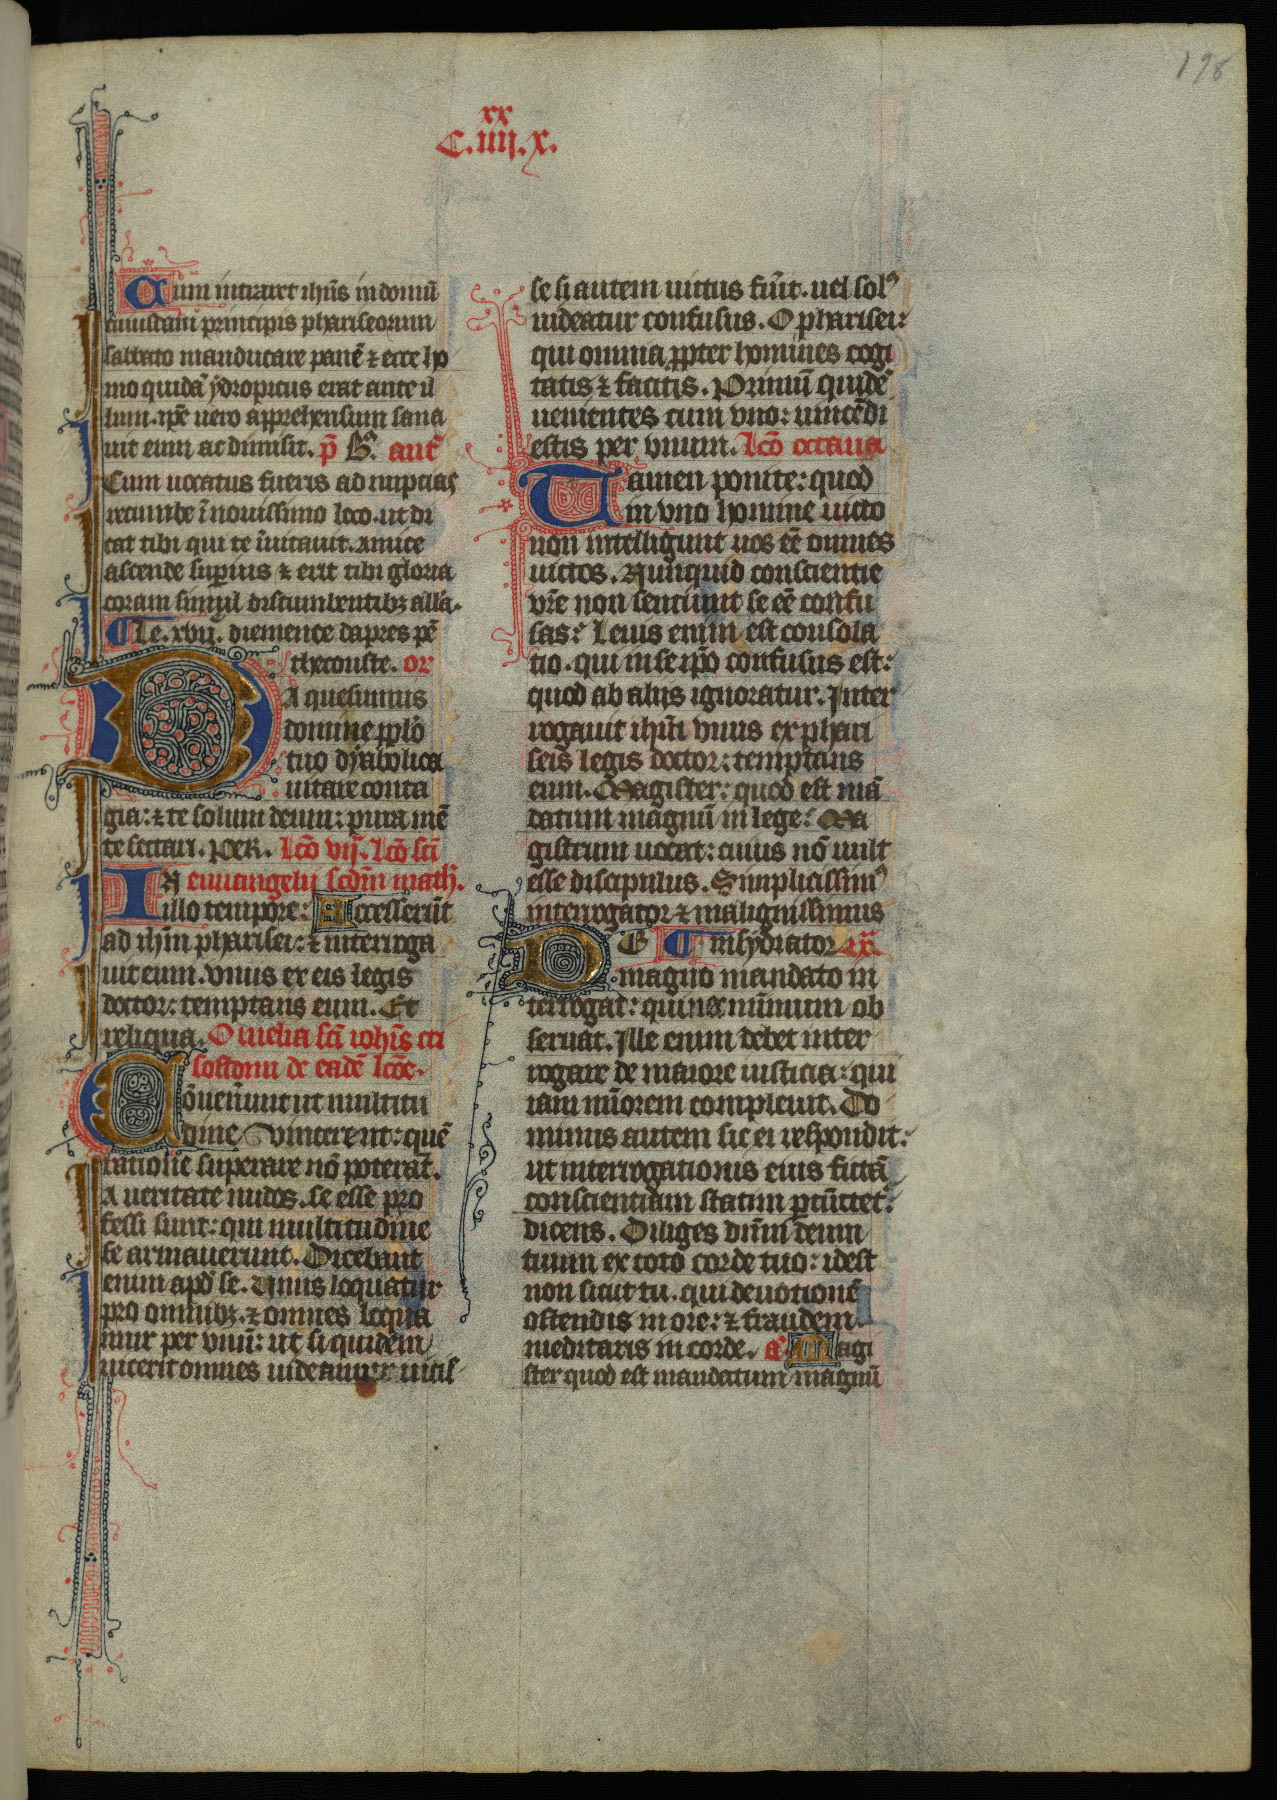 198
xx
C.iiij.x.
Cum intraret ihūs in domū
cuiusdam principis phariseorum
sabbato manducare panē ⁊ ecce ho
mo quidā ydropicus erat ante il
lum. ip̄e uero apprehensum sana
uit eum ac dimisit. p̄ B᷒. ant̄
Cum uocatus fueris ad nuptias
recumbe ī nouissimo loco. ut di
cat tibi qui te īuitauit. amice
ascende superius ⁊ erit tibi gloria
coram simul discumbentibꝫ alla.
Le .xvij. diemence dapres pē
thecouste. or̄
DA quesumus
domine pplo
tuo dyabolica
uitare conta
gia: ⁊ te solum deum: pura mē
te sectari. PER. Lcō vij. Lcō scī
IN euuangelij scdm̄ math̄.
illo tempore: Accesserūt
ad ihm̄ pharisei: ⁊ interroga
uit eum. vnus ex eis legis
doctor: temptans eum. Et
reliqua. Omelia scī ioh̄is cri
sostomi de eadē lcōe.
Cōuenerunt ut multitu
dine vincerent: quē
ratione superare nō poterāt.
A ueritate nudos. se esse pro
fessi sunt: qui multitudine
se armauerunt. Dicebant
enim apd̄ se. Vnus loquatur
pro omnibꝫ. ⁊ omnes loqua
mur per vnū: ut si quidem
uicerit omnes uideamur uicis
se si autem uictus fūit. uel solꝰ
uideatur confusus. O pharisei:
qui omnia ꝓpter homines cogi
tatis ⁊ facitis. Primū quidē
uenientes cum vno: uincēdi
estis per vnum. Lcō octaua
Tamen ponite: quod
in vno homine uicto
non intelligunt uos eē omnes
uictos. Nunquid conscientie
vr̄e non sentiunt se eē confu
sas: Leuis enim est consola
tio. qui in se ip̄o confusus est:
quod ab alijs ignoratur. Inter
rogauit ihm̄ vnus ex phari
seis legis doctor: temptans
eum. Magister: quod est mā
datum magnū in lege: Ma
gistrum uocat: cuius nō uult
esse discipulus. Simplicissimꝰ
interrogator ⁊ malignissimus
insydiator .ix.
DE magno mandato in
terrogat: qui nec minimum ob
seruat. Ille enim debet inter
rogare de maiore iusticia: qui
iam minorem compleuit. Do
minus autem sic ei respondit:
ut interrogationis eius fictā
conscientiam statim ꝑcūtet:
dicens. Diliges dn̄m deum
tuum ex toto corde tuo: idest
non sicut tu. qui deuotionē
ostendis in ore: ⁊ fraudem
meditaris in corde. a᷒ Magi
ster quod est mandatum magnū